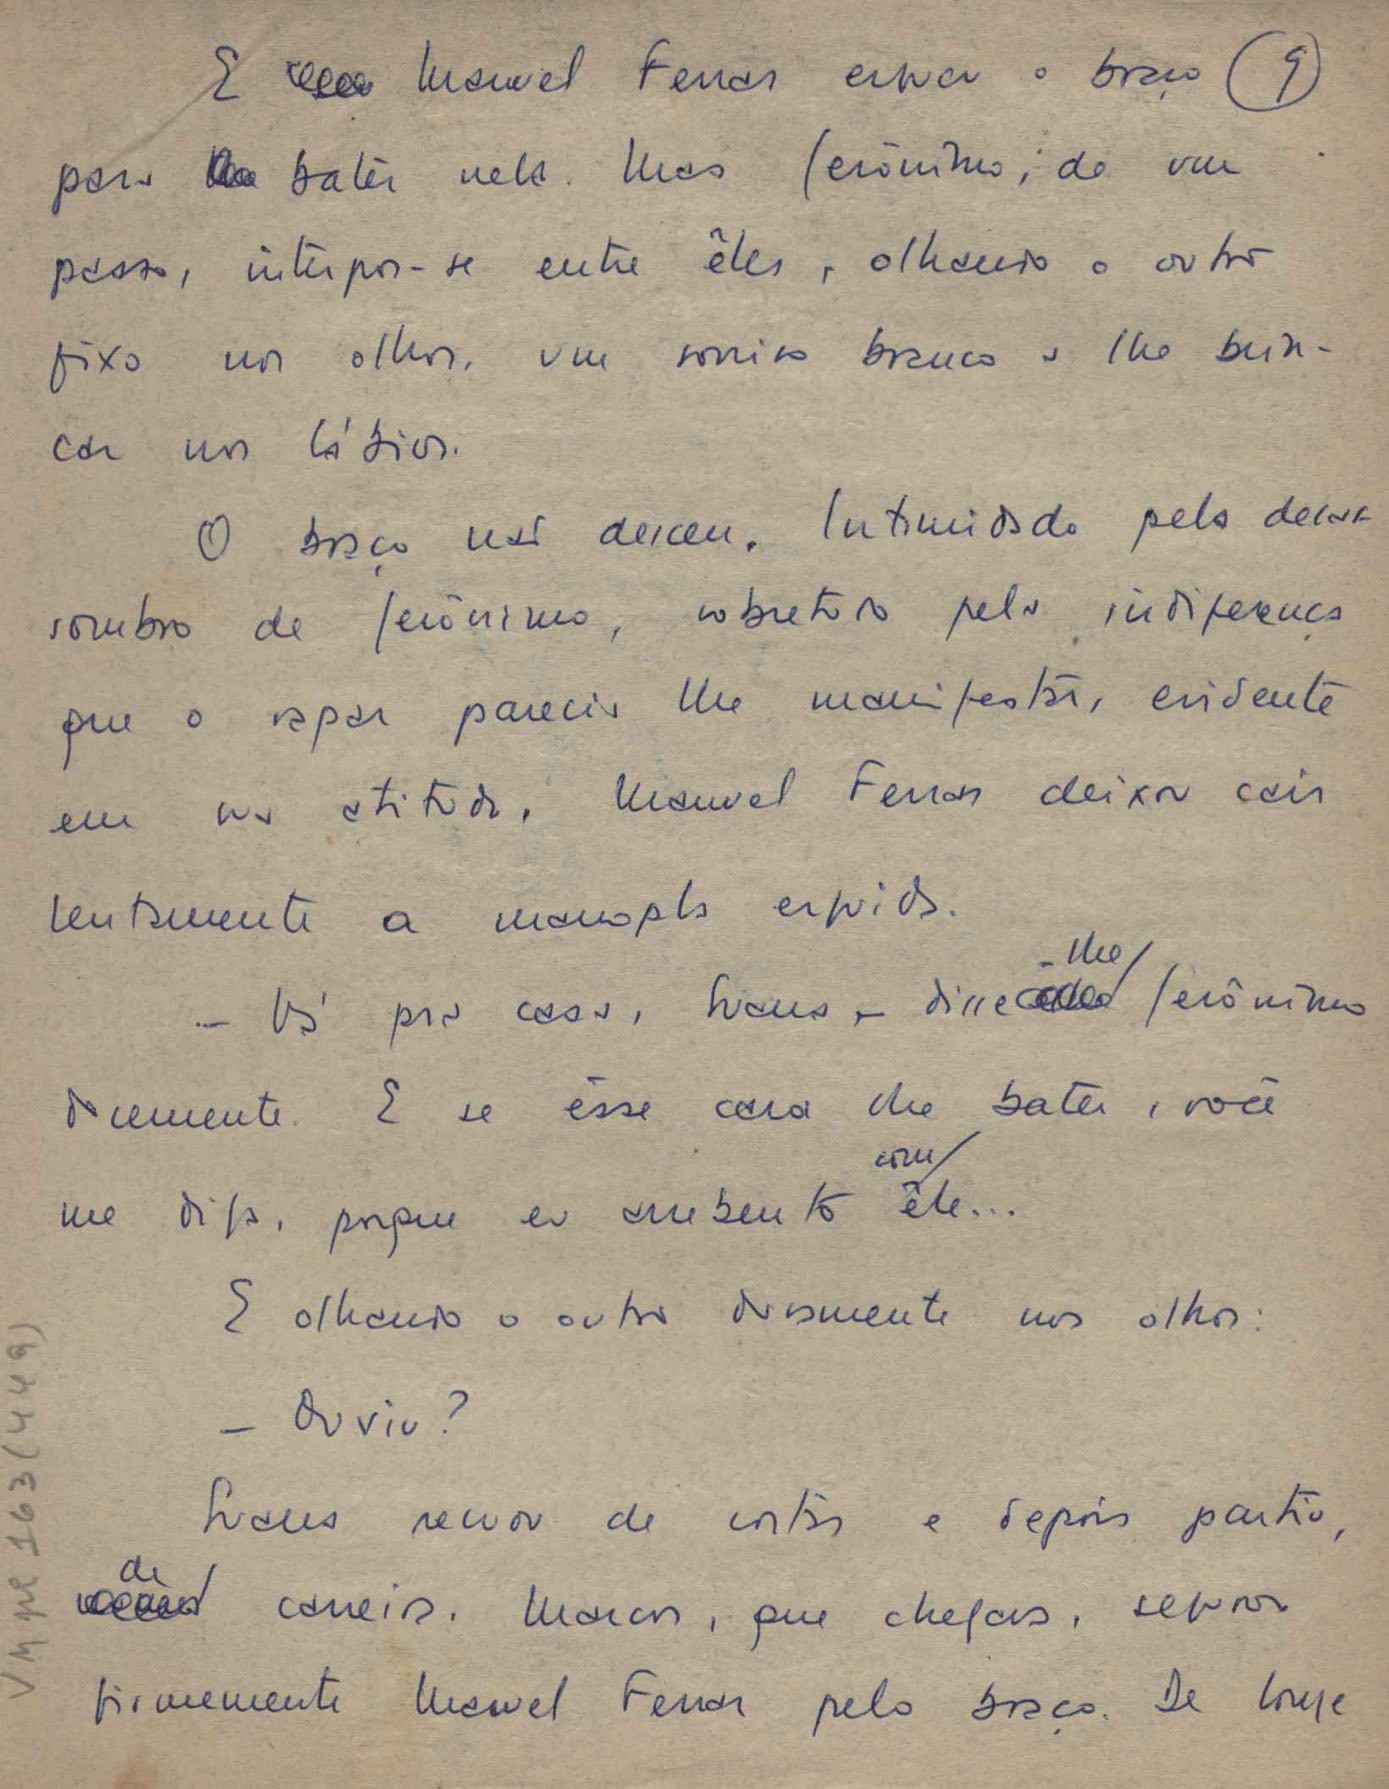 E Manuel Ferraz ergueu o braço (9)
para bater nela. Mas Jerônimo, de um
passo, interpôs-se entre êles, olhando o outro
fixo nos olhos, um sorriso branco a lhe brin-
car nos lábios.
O braço não desceu. Intimidado pelo desas-
sombro de Jerônimo, sobretudo pela indiferença
que o rapaz parecia lhe manifestar, evidente
em sua atitude, Manuel Ferraz deixou cair
lentamente a manopla erguida.
- Vá pra casa, - disse-lhe Jerônimo
docemente. E se êsse cara lhe bater, você
me diga, porque eu arrebento com êle...
E olhando o outro duramente nos olhos:
- Ouviu?
recuou de costas e depois partiu,
de carreira. Marcos, que chegara, segurou
firmemente Manuel Ferraz pelo braço. De longe
VM pi 163 (449)